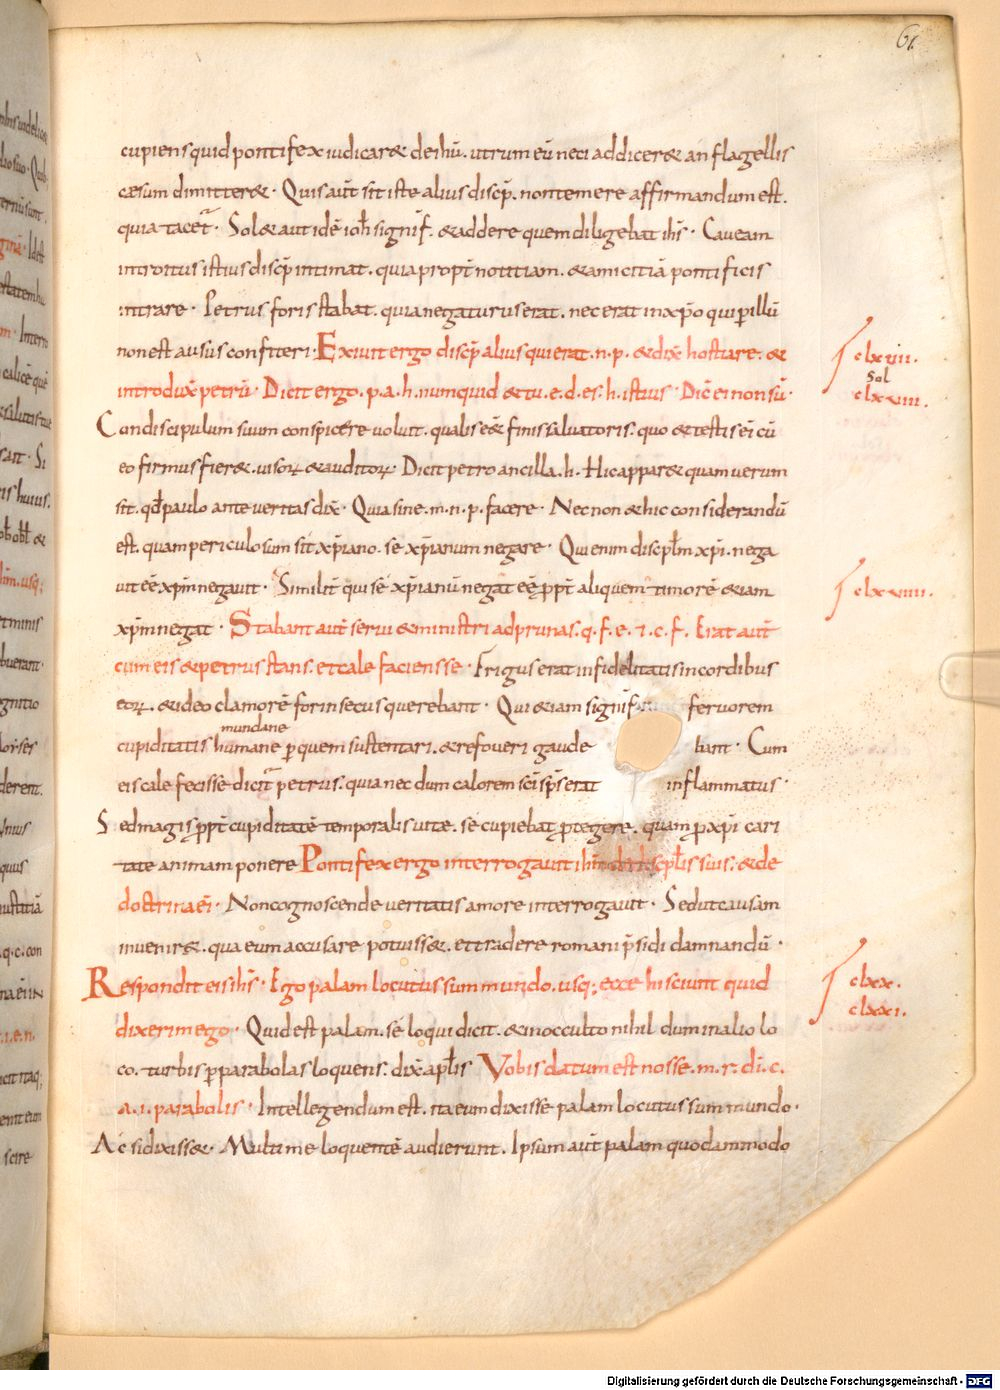 61
cupiens quid pontifex iudicar& de ihū. utrum eū neci addicer& an flagellis
cæsum dimitter&. Quis aūt sit iste alius discp̄. non temere affirmandum est.
quia tacet. Sol& aut idē ioh signif̄. & addere quem diligebat ihs. Caveam
introitus istius discp̄ intimat. quia propt̄ notitiam. & amicitiā pontificis
intrare. Petrus foris stabat. quia negaturus erat. nec erat in xp̄o qui p illū
non est ausus confiteri. Exiuit ergo discp̄ alius qui erat. n. p. & dix̄ hostiare. &
introdux̄ petrū. Dicit ergo. p. a. h. numquid & tu. e. d. es. h. istius. Dic̄ ei non sū.
Condiscipulum suum conspicere voluit. qualis eēt finis salvatoris. quo & testis ei cū
eo firmus fier&. visorꝫ & auditorꝫ. Dicit petro ancilla. h. Hic appar& quam verum
sit. qd̄ paulo ante veritas dix̄. Quia sine. m. n. p. facere. Nec non & hic considerandū
est. quam periculosum sit xp̄iano. se xp̄ianum negare. Qui enim discplm xp̄i. nega
uit eē xp̄m negauit. Similit̄ qui sē xp̄ianū negat eē ppt̄ aliquem timorē &iam
xp̄m negat. Stabant aūt serui & ministri ad prunas. q. f. e. i. c. f. Erat aūt
cum eis & petrus stans. et calefaciens se. Frigus erat infidelitatis in cordibus
eorꝫ. & ideo clamorē forinsecus querebant. Qui &iam signif̄ fervorem
mundane
cupiditatis humane p quem sustentari. & refoveri gaude bant. Cum
eis cale fecisse dicit̄ petrus. quia nec dum calorem sc̄i sp̄s erat inflammatus.
Sed magis ppt̄ cupiditatē temporalis vitæ. se cupiebat ptegere. quam p xp̄i cari
tate animam ponere Pontifex ergo interrogauit ihm de discplis suis. & de
doctrina ei. Non cognoscende veritatis amore interrogauit. Sed ut causam
invenir&. qua eum accusare potuiss&. et tradere romani p̄sidi damnandū.
Respondit eis ihs. Ego palam locutus sum mundo. usq; ecce hi sciunt quid
dixerim ego. Quid est palam. se loqui dicit. & in occulto nihil dum in alio lo
co. turbis p parabolas loquens. dix̄ aplis Vobis datum est nosse. m. r. di. c.
a. i. parabolis. Intellegendum est. ita eum dixisse palam locutus sum mundo.
Ac si dixiss&. Multi me loquentē audierunt. Ipsum aūt palam quodammodo
clxvii.
Sol
clxviii.
clxviiii.
clxx.
clxxi.
Digitalisierung gefördert durch die Deutsche Forschungsgemeinschaft - DFG